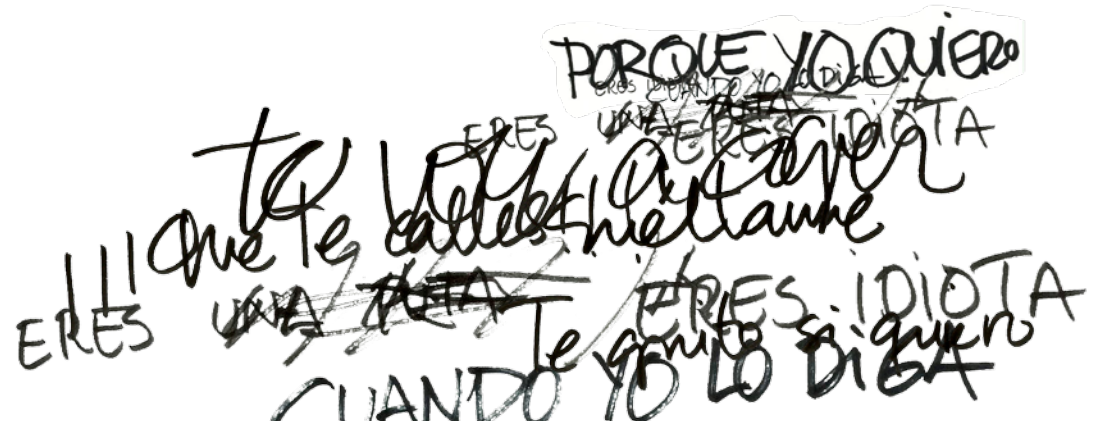 PORQUE YO QUIERO
ERES CUANDO YO LO DIGA
ERES UNA PUTA ERES IDIOTA
te voy a comer
!!! Que te calles
ERES UNA PUTA ERES IDIOTA
Te grito si quiero
CUANDO YO LO DIGA